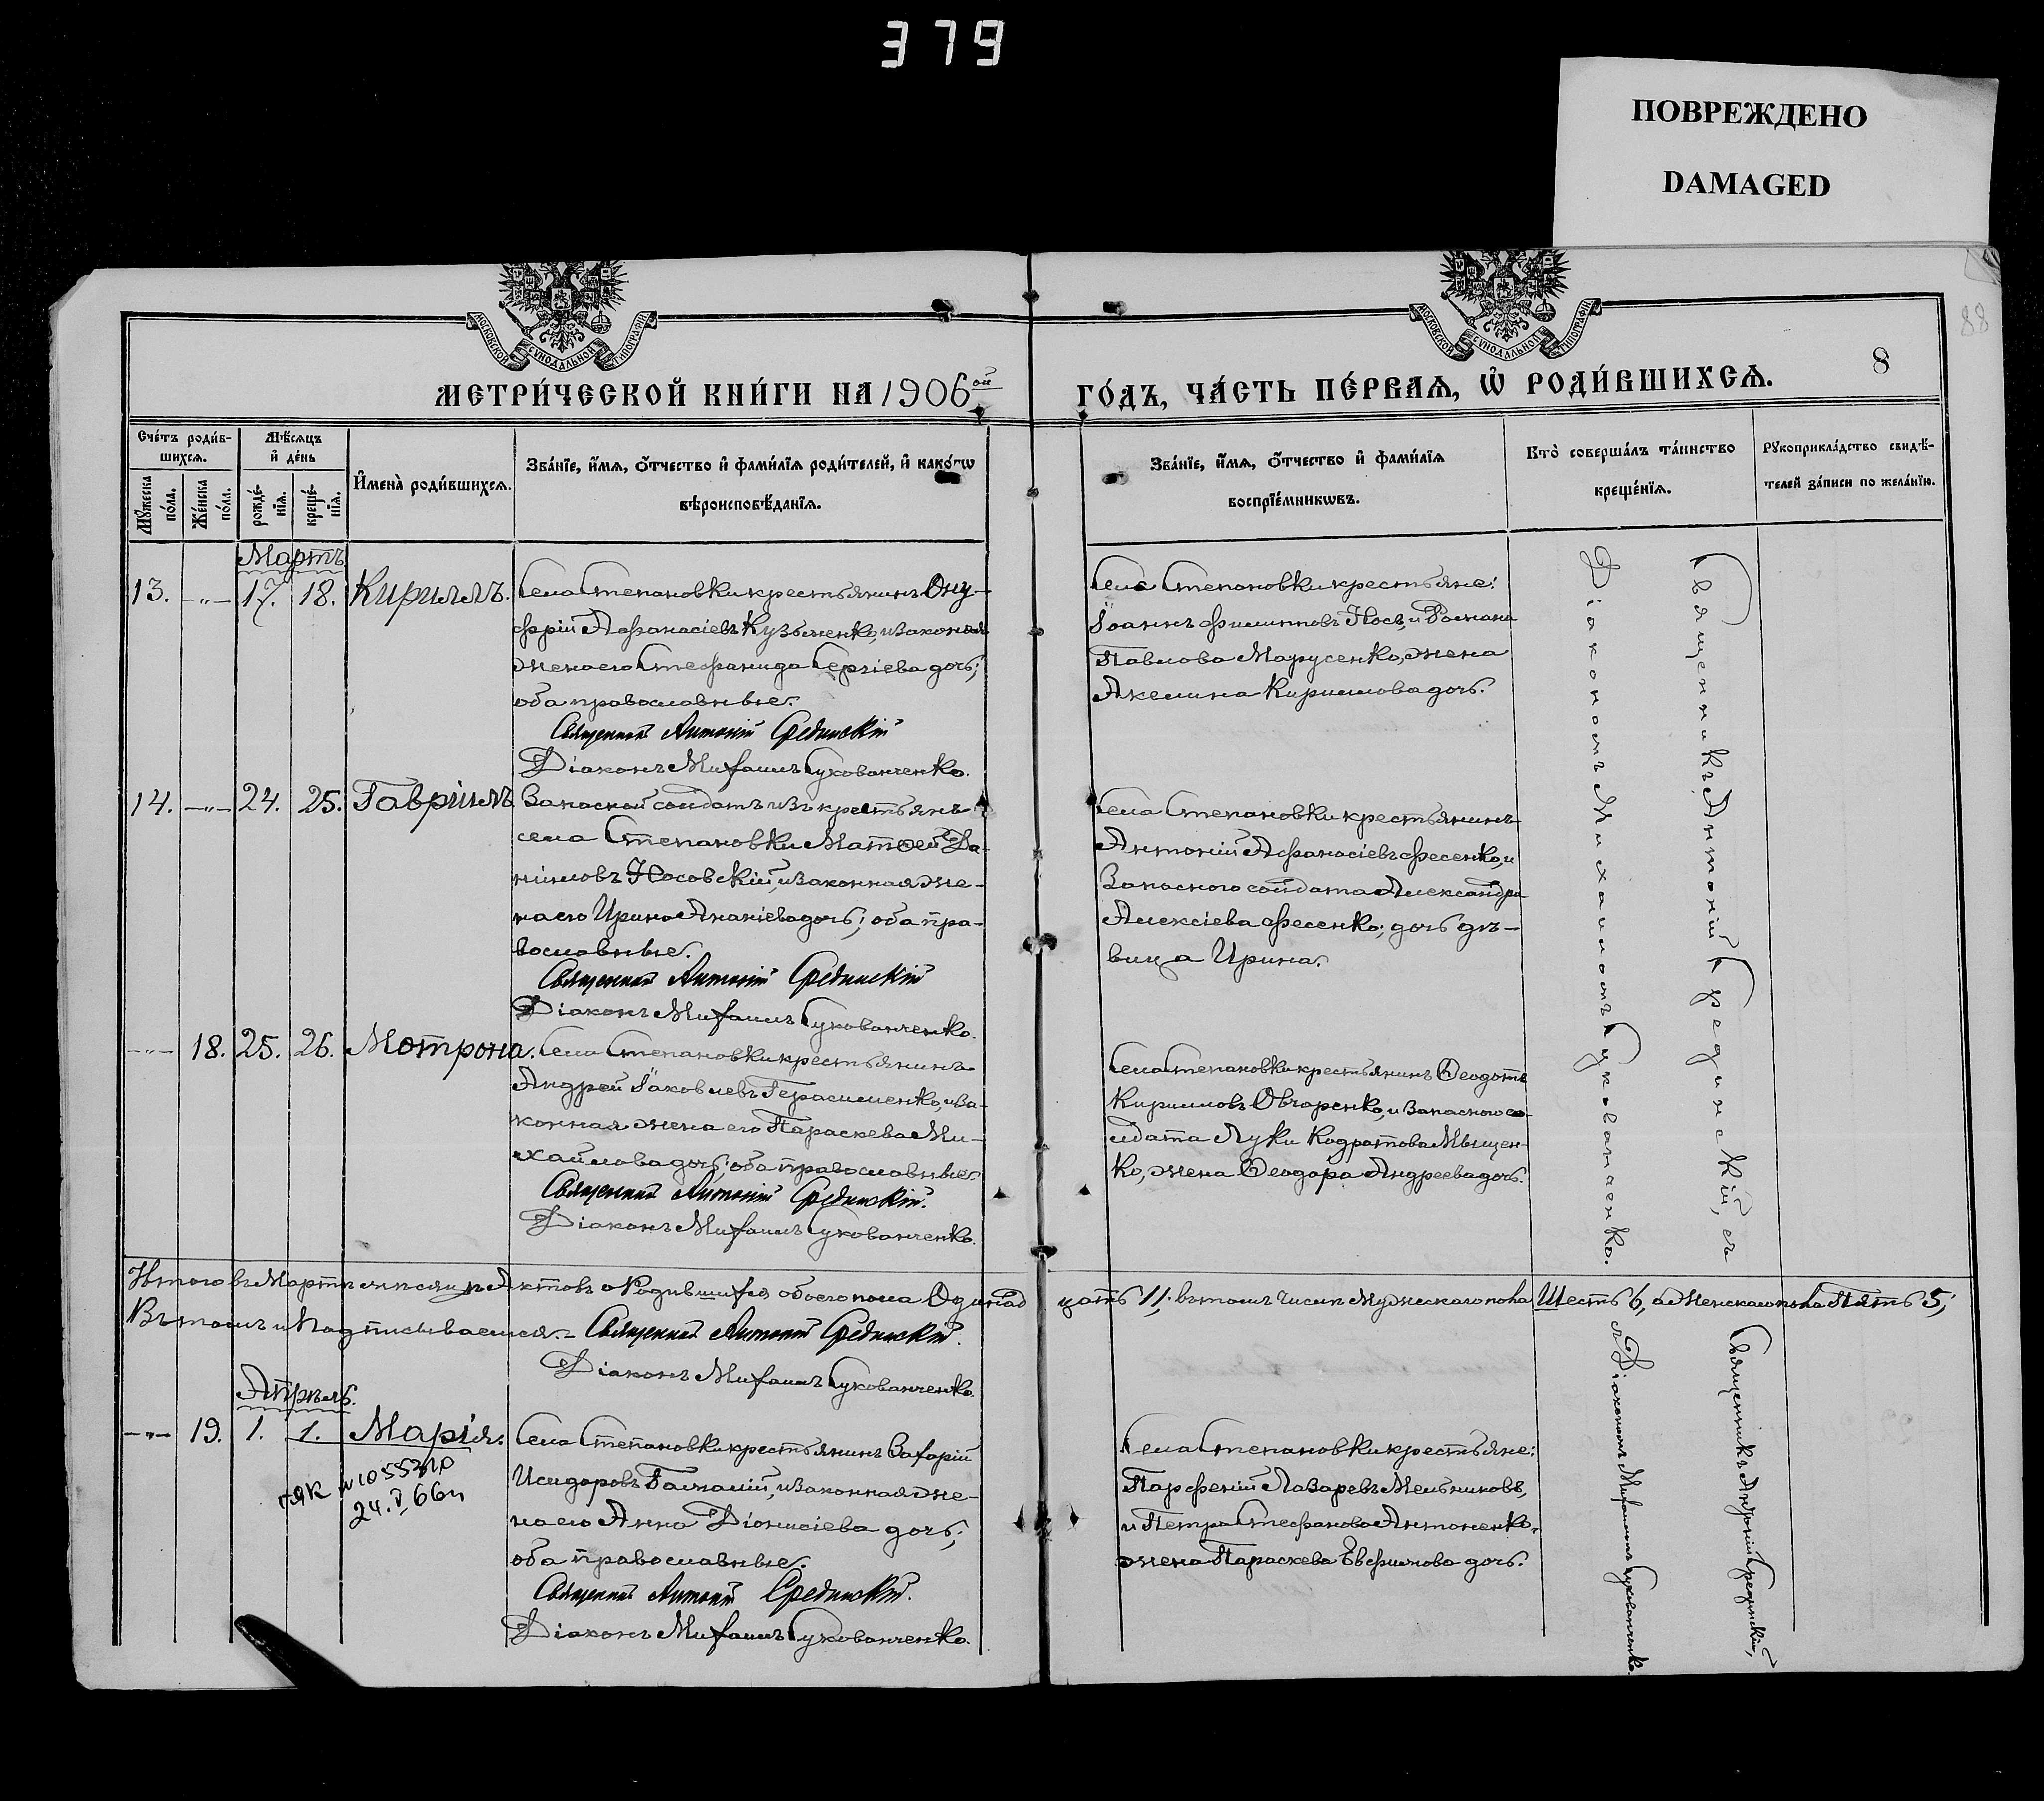 379
ПОВРЕЖДЕНО
DAMAGED
МОСКОВСКОЙ СѴНОДАЛЬНОЙ ТИПОГРАФІИ
МОСКОВСКОЙ СѴНОДАЛЬНОЙ ТИПОГРАФІИ
88
8
МЕТРИ́ЧЕСКОЙ КНИ́ГИ НА 1906ой
ГО́ДЪ, ЧА́СТЬ ПЕ́РВАѦ, Ѡ҆ РОДИ́ВШИХСѦ.
Сче́тъ роди́в-
шихсѧ.
Мѣ́сѧцъ
и҆ де́нь
Мꙋ́жеска
по́ла.
Же́нска
по́ла.
рожде́-
нїѧ.
креще́-
нїѧ.
И҆мена̀ роди́вшихсѧ.
Зва́нїе, и҆́мѧ, ѻ҆́тчество и҆ фами́лїѧ роди́телей, и҆ како́гѡ
вѣроисповѣ́данїѧ.
Зва́нїе, и҆́мѧ, ѻ҆́тчество и҆ фами́лїѧ
воспрїе́мникѡвъ.
Кто̀ соверша́лъ та́инство
креще́нїѧ.
Рꙋкоприкла́дство свидѣ́-
телей за́писи по жела́нїю.
Мартъ
13. -"- 17. 18. Кириллъ.
Села Степановки крестьянинъ Ону-
фрій Афанасіевъ Кузьменко, и законная
жена его Стефанида Сергіева дочь;
оба православные.
Священникъ Антоній Срединскій
Діаконъ Михаилъ Сукованченко.
Села Степановки крестьяне:
Іоаннъ Филипповъ Носъ, и Романа
Павлова Марусенко, жена
Акелина Кириллова дочь.
14. -"- 24. 25. Гавріилъ
Запасной солдатъ изъ крестьянъ
села Степановки Матѳей Да-
ніиловъ Носовскій, и законная же-
на его Ирина Ананіева дочь; оба пра-
вославные.
Священникъ Антоній Срединскій
Діаконъ Михаилъ Сукованченко.
Села Степановки крестьянинъ
Антоній Афанасіевъ Фесенко, и
Запасного солдата Александра
Алексіева Фесенко; дочь дѣ-
вица Ирина.
-"- 18. 25. 26. Мотрона.
Села Степановки крестьянинъ
Андрей Іаковлевъ Герасименко, и за-
конная жена его Параскева Ми-
хаилова дочь; оба православные.
Священникъ Антоній Срединскій.
Діаконъ Михаилъ Сукованченко.
Села Степановки крестьянинъ Ѳеодотъ
Кирилловъ Овчаренко, и Запасного со-
лдата Луки Кодратова Мыщен-
ко, жена Ѳеодора Андреева дочь.
Священникъ Антоній Срединскій, съ
Діакономъ Михаиломъ Сукованченко.
Итого въ Мартѣ мѣсяцѣ Актовъ о Родившихся обоего пола Одиннад
цать 11, въ томъ числѣ Мужескаго пола Шесть 6, а Женскаго пола Пять 5;
Въ томъ и Подписываемся. - Священникъ Антоній Срединскій.
Діаконъ Михаилъ Сукованченко.
Апрѣль.
-"- 19. 1. 1. Марія.
24. V 66
Села Степановки крестьянинъ Захарій
Исидоровъ Галмалій, и законная же-
на его Анна Діонисіева дочь;
оба православные.
Священникъ Антоній Срединскій.
Діаконъ Михаилъ Сукованченко.
Села Степановки крестьяне:
Парфеній Лазаревъ Мельниковъ,
и Петра Стефанова Антоненко,
жена Параскева Евфимова дочь.
Священникъ Антоній Срединскій,
съ Діакономъ Михаиломъ Сукованченко.